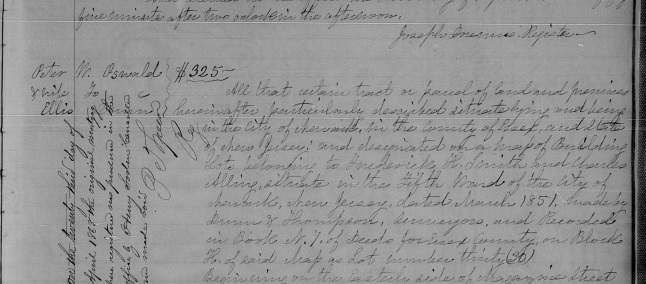 five minutes after two oclock in the afternoon.
Joseph Register
Peter W. Oswald
& wife To
Ellis
$325
All that certain tract or parcel of land and premises
hereinafter particularly described situate lying and being
in the City of Newark, in the County of Essex, and State
of New Jersey, and designated on a map of Building
Lots belonging to Frederick H. Smith and Charles
Alling, situate in the Fifth Ward of the City of
Newark, New Jersey, dated March 1851, made by
Dunn & Thompson, Surveyors, and Recorded
in Book N. 7. of Deeds for Essex County, on Block
H. of said Map as Lot number thirty (30)
Beginning on the Easterly side of Magazine Street
on the twenty third day of
April 1885 the original mortgage
was registered was produced in the
office & Being